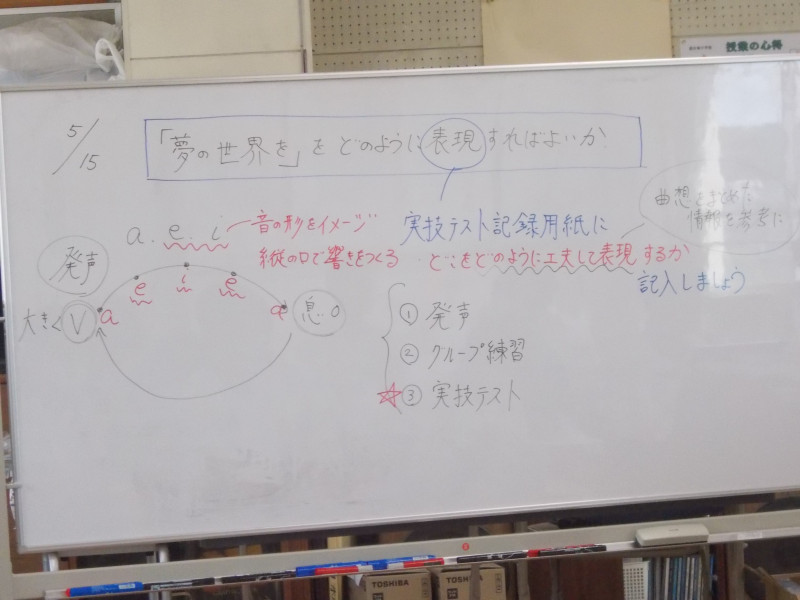 授業の心得
5/15
「夢の世界を」をどのように表現すればよいか
a. e. i
音の形をイメージ
縦の口で響きをつくる
発声
大きく V
a e i e a
息.0
実技テスト記録用紙に
どこをどのように工夫して表現するか
記入しましょう
曲想をまとめた
情報を参考に
① 発声
② グループ練習
☆③ 実技テスト
TOSHIBA
TOSHIBA